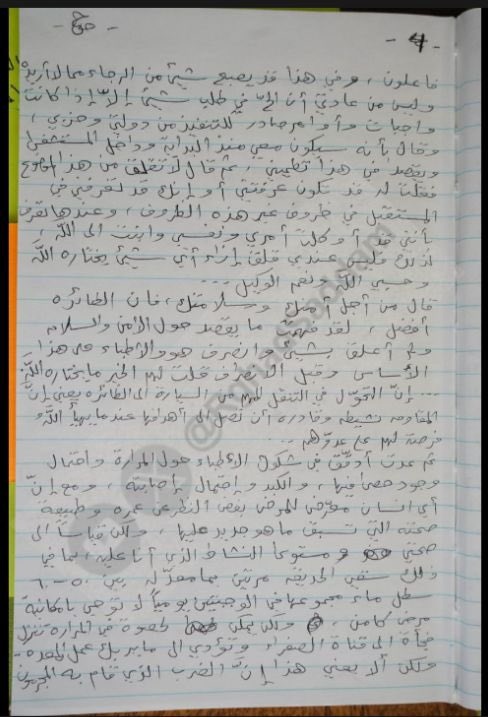 - 4 -
فاعلون ، وفي هذا قد يصبح شيئ من الرجاء مما لا أريده
وليس من عادتي أن ألحّ في طلب شيئ إلاّ إذا كانت
واجبات وأوامر صادر للتنفيذ من دولتي وحزبي ،
وقال بأنه سيكون معي منذ البداية وداخل المستشفى
ويقصد من هذا تطميني ، ثم قال لا تقلق من هذا الموضوع
فقلت له قد تكون عرفتني أو إنك قد تعرفني في
المستقبل في ظروف غير هذه الظروف ، وعندها تعرف
بأنني قد أوكلت أمري ونفسي وابنت الى اللّه ،
لذلك فليس عندي قلق إزاء أي شيئ يختاره اللّه
وحسبي اللّه ونعم الوكيل ...
قال من أجل أمنك وسلامتك، فان الطائره
أفضل ، لقد فهمت ما يقصد حول الأمن والسلامه
ولم أعلق بشيئ وانصرف هو والأطباء على هذا
الأساس وقبل الانصراف قلت لهم الخير ما يختاره اللّه
.... إنّ التحوّل في التنقل لهم من السيارة الى الطائره يعني إنّ
المقاومه نشيطه وقادره أن تصل الى أهدافها عندما يهيأ اللّه
فرصة لهم على عدوّهم ...
ثم عدت أدقّق في شكوك الأطباء حول المرارة واحتمال
وجود حصى فيها ، والكبد وإحتمال إصابته ، ومع إنّ
أي انسان معرّض للمرض بغض النظر عن عمره وطبيعة
صحته التي تسبق ما هو جديد عليها ولكن قياساً الى
صحتي ومستوى النشاط الذي أنا عليه ، بما في
ذلك سقي الحديقه مرتين بما معدّله بين ٥٠-٦٠
سطل ماء مجموعها في الوجبتين يومياً لا توحي بامكانية
مرض كامن ، ولكن يمكن لحصوة في المرارة تنزل
فجأة الى قناة الصفراء وتؤدي الى ما يربك عمل المعده -
ولكن ألا يعني هذا إنّ الضرب الذي قام به المجرمون